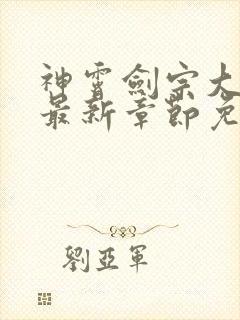 神霄劍宗大
最新章節免
劉亞軍